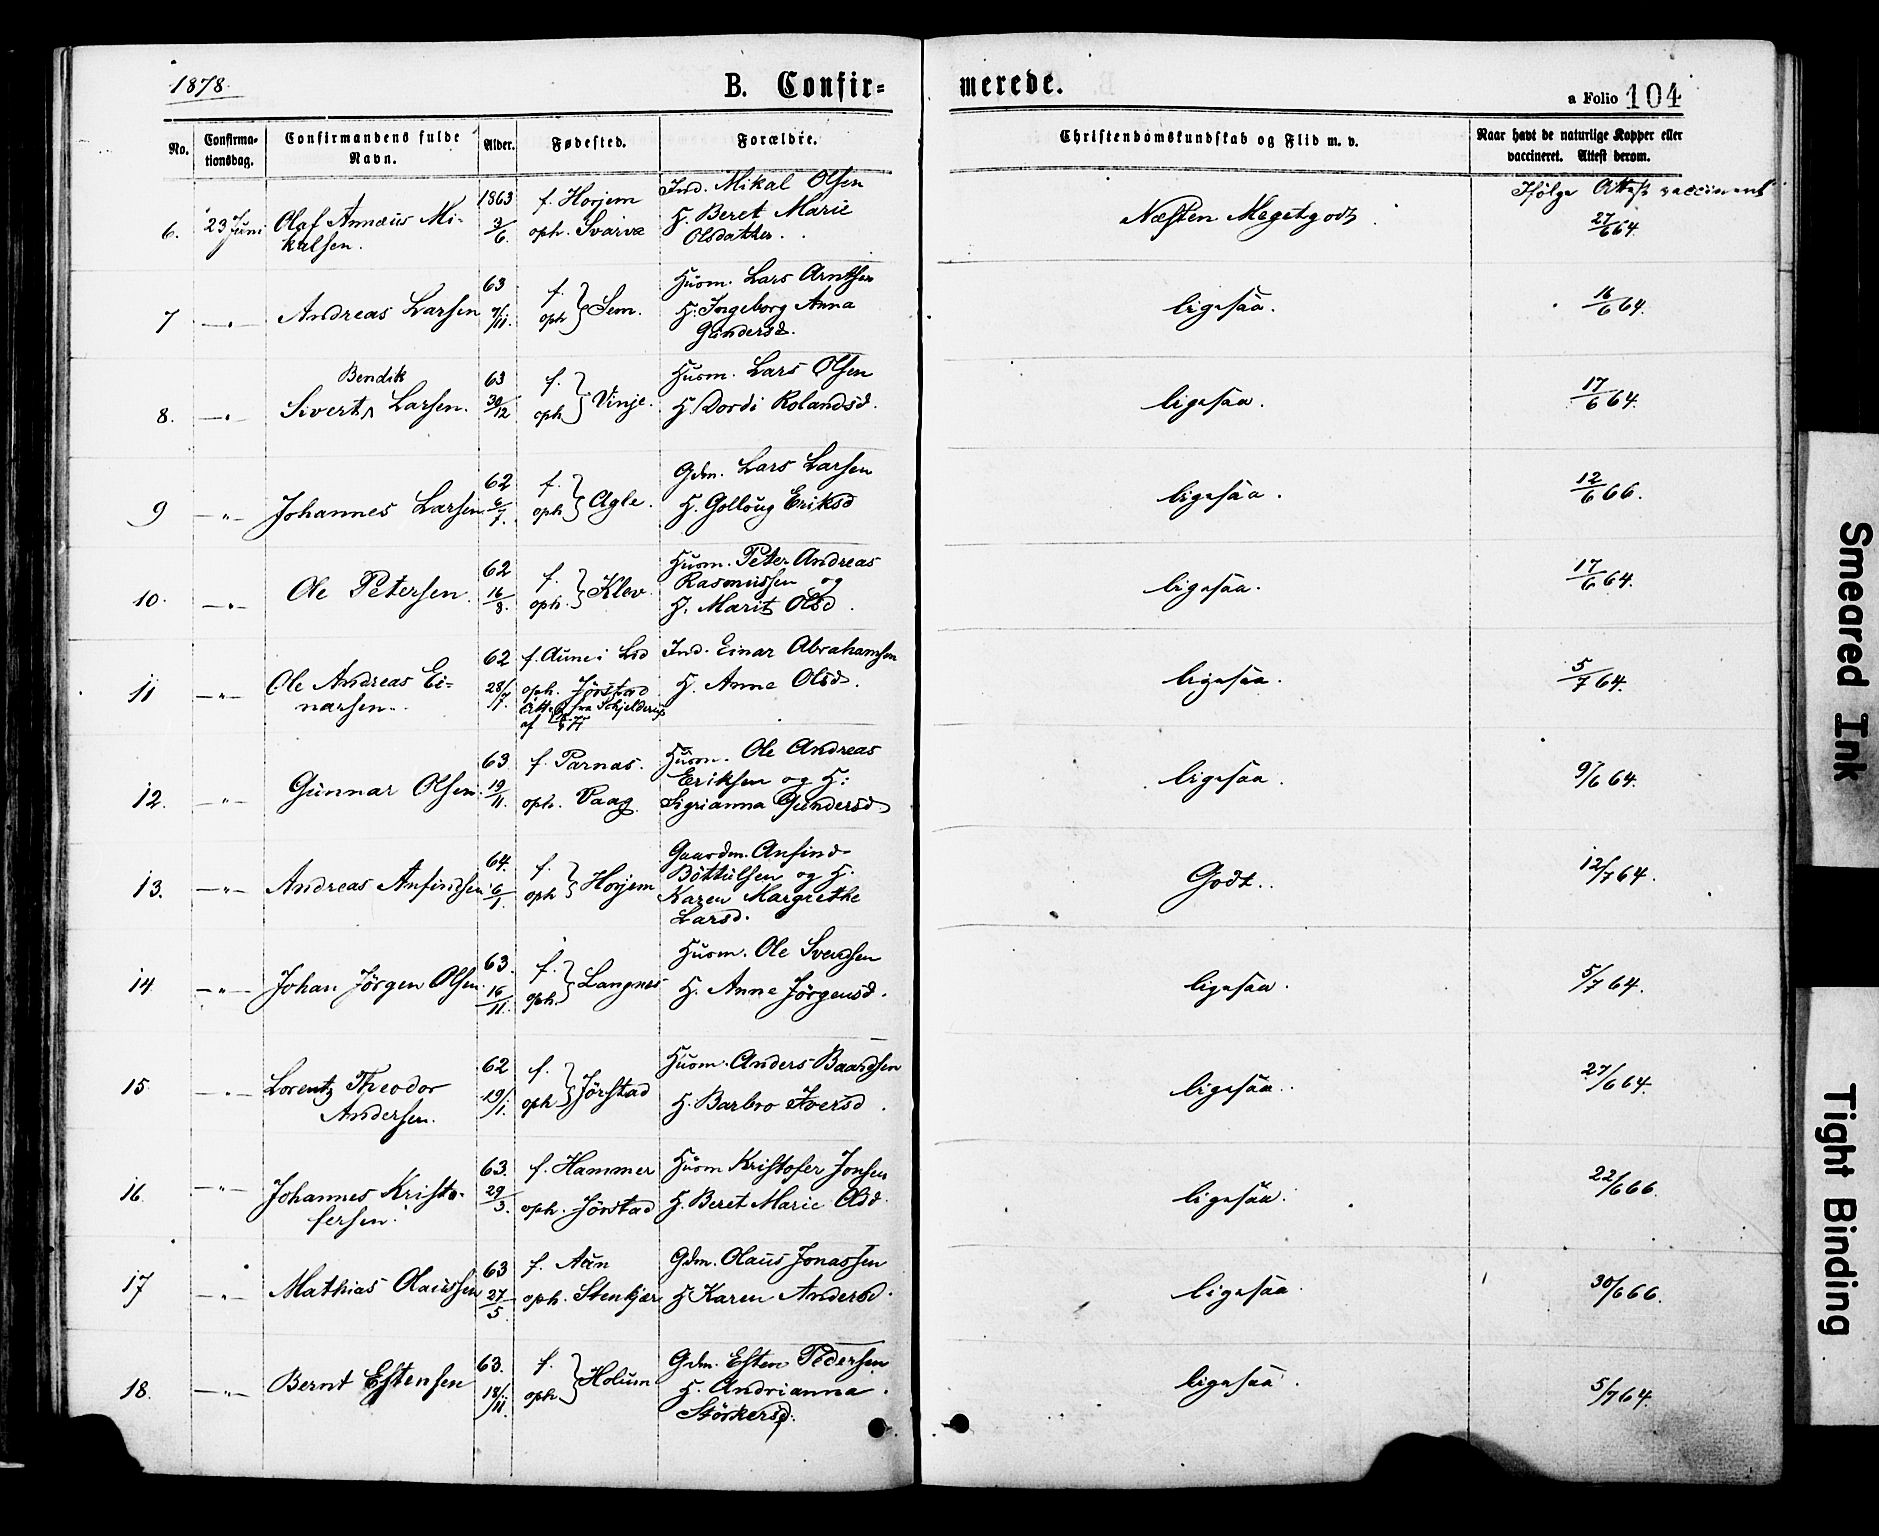 1878.
B. Confir=
merede.
a Folio 104
No.
Confirma-
tionsdag.
Confirmandens fulde
Navn.
Alder.
Fødested.
Forældre.
Christendomskundskab og Flid m. v.
Naar havt de naturlige Kopper eller
vaccineret. Attest derom.
6. 23 Juni Olaf Annæus Mi-
kalsen.
1863
3/6.
f. Horjem
oph. Svarva
Ind. Mikal Olsen
H. Beret Marie
Olsdatter.
Næsten Megetgodt
Ifølge Attest vaccineret
27/6 64.
7 —"— Andreas Larsen
63
7/11.
f.
oph } Sem.
Husm. Lars Arntsen
H. Ingeborg Anna
Gundersd.
ligesaa.
16/6 64.
8. —"— Bendik
Sivert, Larsen.
63
30/12
f.
oph } Vinje.
Husm. Lars Olsen
H. Dordi Rolandsd.
ligesaa.
17/6 64.
9 —"— Johannes Larsen
62
6/7.
f.
oph } Agle.
Gdm. Lars Larsen
H. Golloug Eriksd
ligesaa.
12/6 66.
10. —"— Ole Petersen.
62
16/8.
f.
oph. } Klev.
Husm. Peter Andreas
Rasmussen og
H. Marit Olsd.
ligesaa.
17/6 64.
11 —"— Ole Andreas Ei-
narsen.
62
28/7.
f. Aune i Lid
oph. Jörstad
Att. fra Schjelderup
af
Ind. Einar Abrahamsen
H. Anne Olsd.
ligesaa.
5/7 64.
12. —"— Gunnar Olsen.
63
19/11.
f. Parnas.
oph. Vaag.
Husm. Ole Andreas
Eriksen og H:
Sigrianna Gundersd
ligesaa.
9/6 64.
13. —"— Andreas Anfindsen
64.
6/1.
f.
oph } Horjem
Gaardm. Anfind
Böttulsen og H.
Karen Margrethe
Larsd.
Godt.
12/7 64.
14 —"— Johan Jörgen Olsen.
63.
16/11.
f.
oph. } Langnes
Husm. Ole Svendsen
H. Anne Jörgensd.
ligesaa.
5/7 64.
15 —"— Lorentz Theodor
Andersen.
62
19/1.
f.
oph } Jörstad
Husm. Anders Baardsen
H. Barbro Iversd.
ligesaa.
27/6 64.
16. —"— Johannes Kristo-
fersen.
63.
29/3.
f. Hammer
oph. Jörstad
Husm Kristofer Jonsen
H. Beret Marie Olsd.
ligesaa.
22/6 66.
17 —"— Mathias Olaussen
63
27/5.
f. Aun
oph. Stenkjær
Gdm. Olaus Jonassen
H Karen Andersd.
ligesaa
30/6 66.
18. —"— Bernt Estensen
63.
18/11.
f.
oph } Holum
Gdm. Esten Pedersen
H. Andrianna
Störkersd.
ligesaa.
5/7 64.
Smeared Ink
Tight Binding